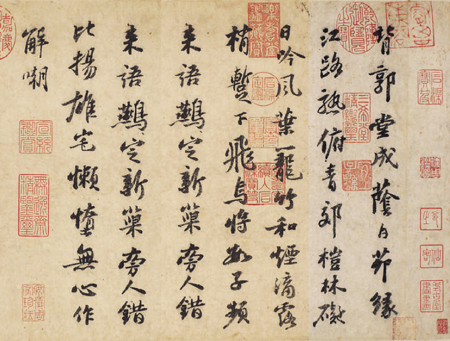 背郭堂成蔭白茆緣
江路熟俯青郊榿林礙
日吟風葉籠竹和煙滴露
梢暫下飛烏將數子頻
来語鷰定新巢旁人錯
来語鷰定新巢旁人錯
比揚雄宅懶惰無心作
解嘲